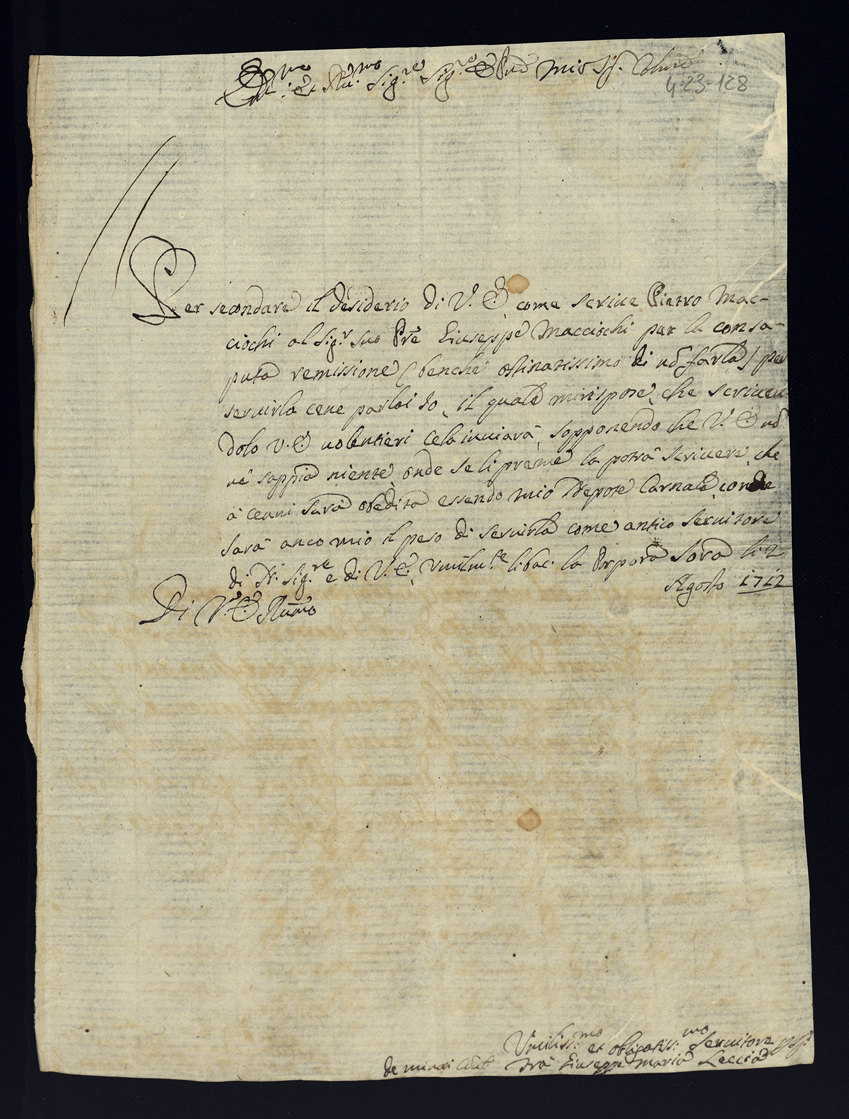 Em.mo et Rev.mo Sig.re Sig.re e Prn̄e mio
4-23-128
Per secondare il desiderio di V. E. come scrive Pietro Mac-
ciochi al Sig.r suo Prē Giuseppe Macciochi per la consa-
puta remissione (benche ostinatissimo di nō farla) per
servirla cene parlai Io, il quale mi rispose, che scriven
dolo V. E. volentieri cela inviarà, sopponendo che V. E. nō
nè sappia niente, onde se li preme la potrà scrivere che
à cenni sarà obedita essendo mio Nepote Carnale,
sarà anco mio il peso di servirla come antico servitore
di N. Sig.re e di V. E. Umilm.te li bac: la Porpora Sora li 2
Agosto 1712
Di V. E. Rev̄ma
Umiliss.mo et obligatis.mo Servitore
de minori Frà Giuseppe Maria